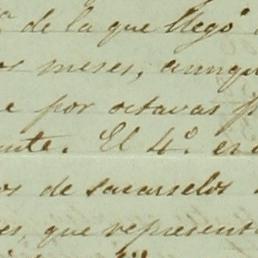 de la que llegó
meses, aunqu
por octavas p
nte. El 4.º en
os de sacárselos
es, que represent